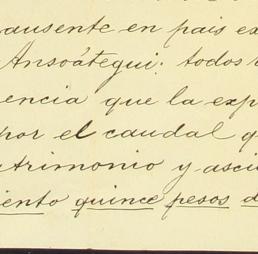 ausente en pais ex
Ansoátegui: todos
encia que la exp
por el caudal q
trimonio y asci
iento quince pesos d